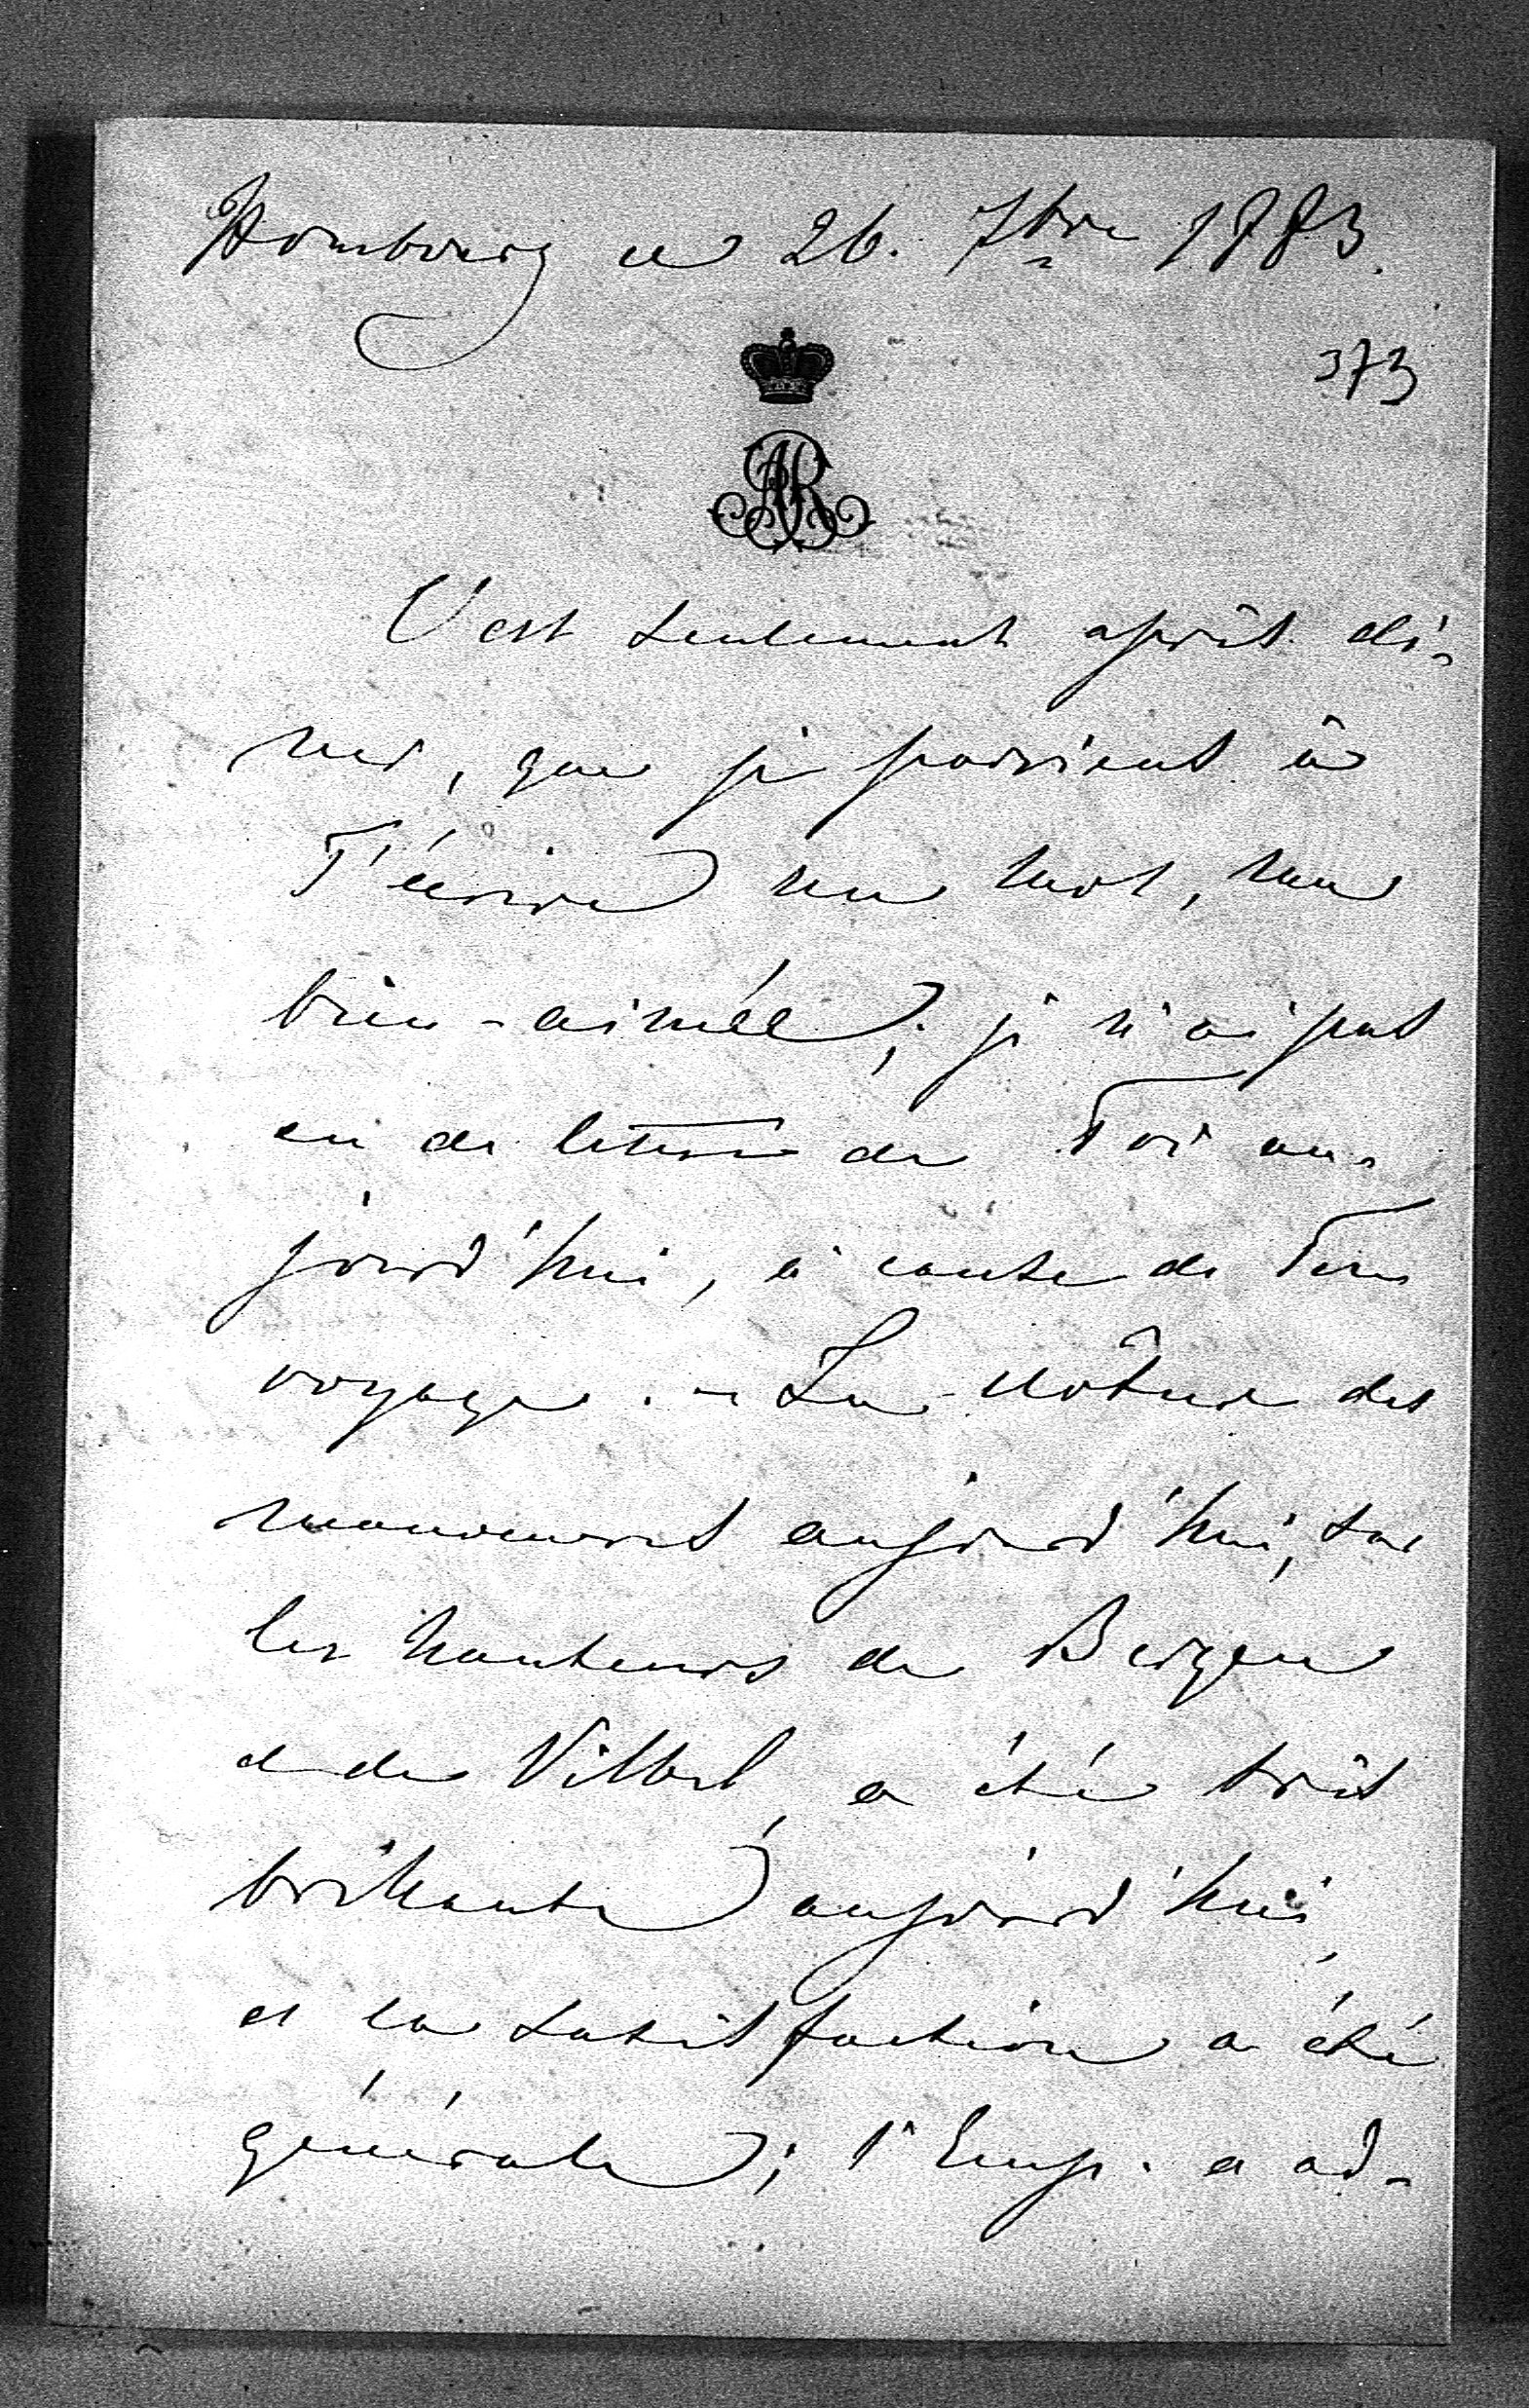 Hombourg ce 26. 7bre 1883.
373
AR
C'est seulement après dî-
ner, que je parviens à
T'écrire un mot, ma
bien-aimée; je n'ai pas
eu de lettre de Toi au-
jourd'hui, à cause de Ton
voyage. - La clôture des
manoeuvres aujourd'hui, sur
les hauteurs de Bergen
et de Vilbel, a été très
brillante aujourd'hui,
et la satisfaction a été
générale; l'Emp. a ad-